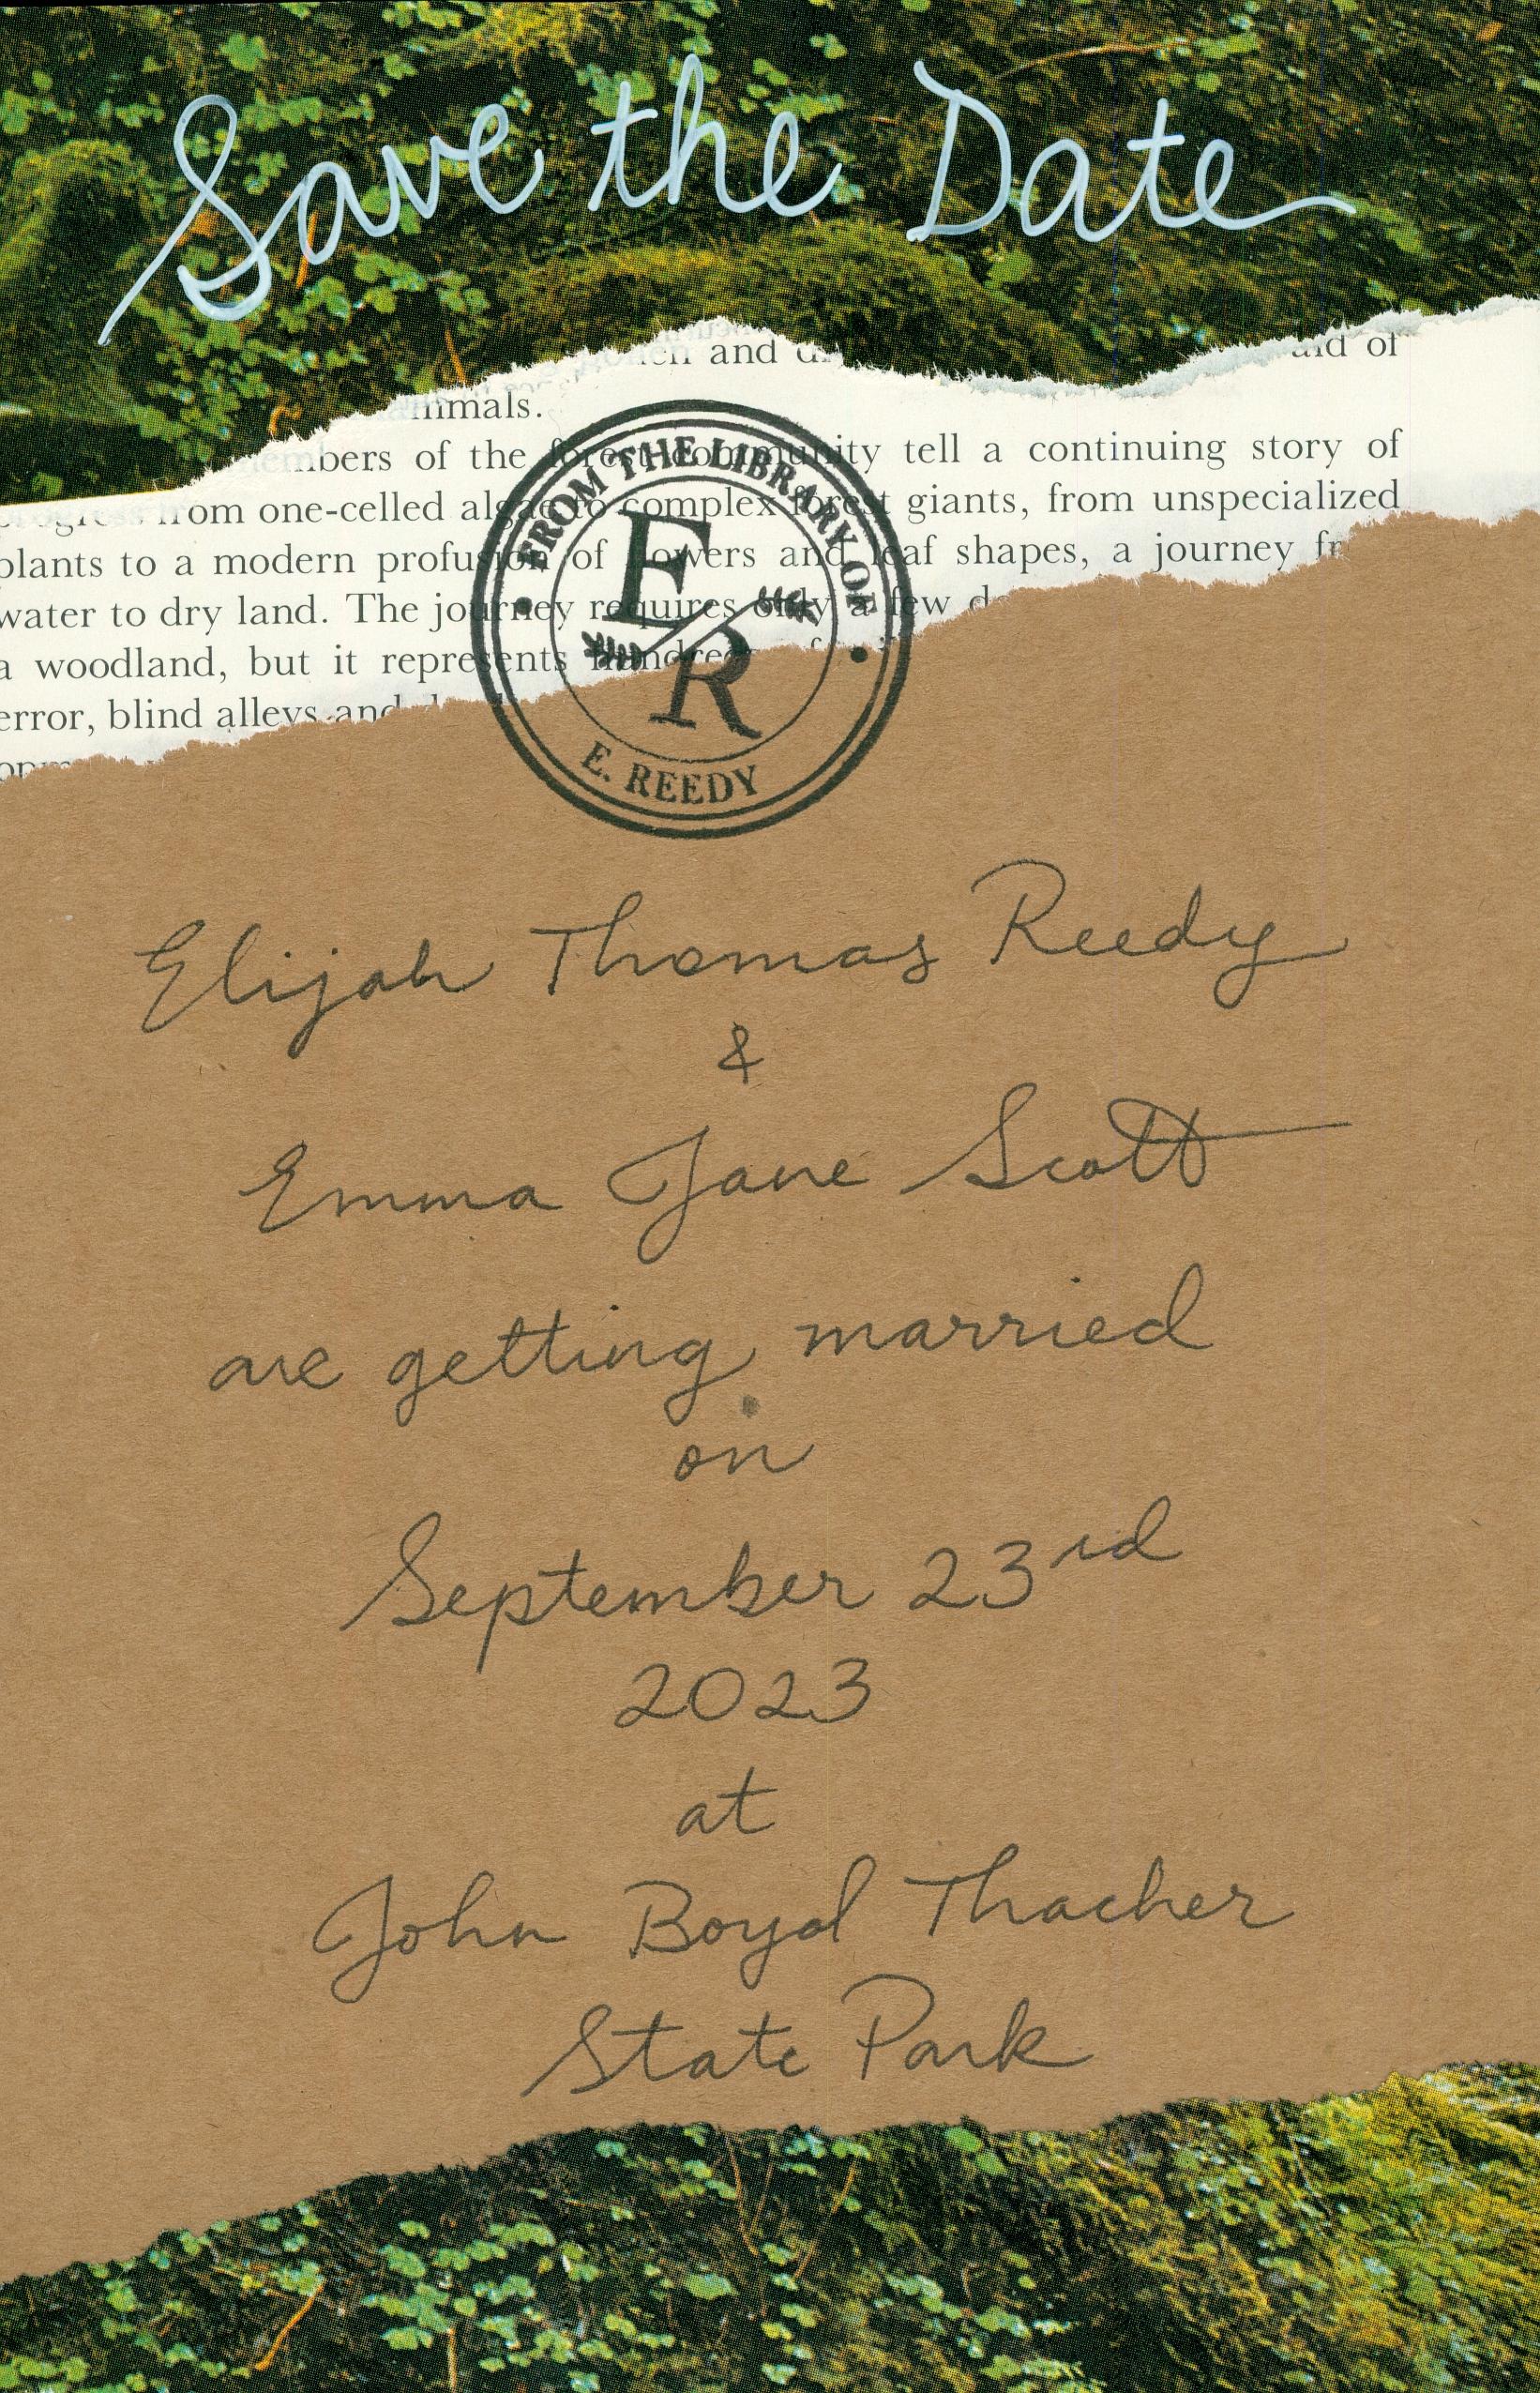 Save the Date
and
aid of
mammals.
members of the forest community tell a continuing story of
progress from one-celled algae to complex forest giants, from unspecialized
plants to a modern profusion of flowers and leaf shapes, a journey
water to dry land. The journey requires only a few
a woodland, but it represents hundreds
error, blind alleys and
FROM THE LIBRARY OF
E
R
E. REEDY
Elijah Thomas Reedy
&
Emma Jane Scott
are getting married
on
September 23rd
2023
at
John Boyd Thacher
State Park